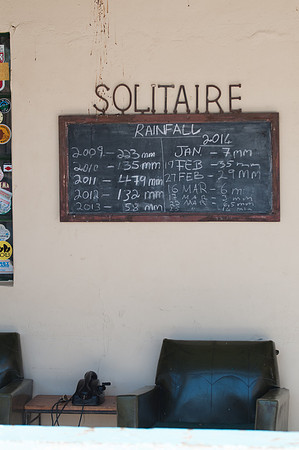 SOLITAIRE
RAINFALL
2014
2009 - 223 mm
2010 - 135 mm
2011 - 479 mm
2012 - 132 mm
2013 - 58 mm
JAN - 7 mm
17 FEB - 35 mm
27 FEB - 29 mm
16 MAR - 6 m
MAR - 3 mm
MAR